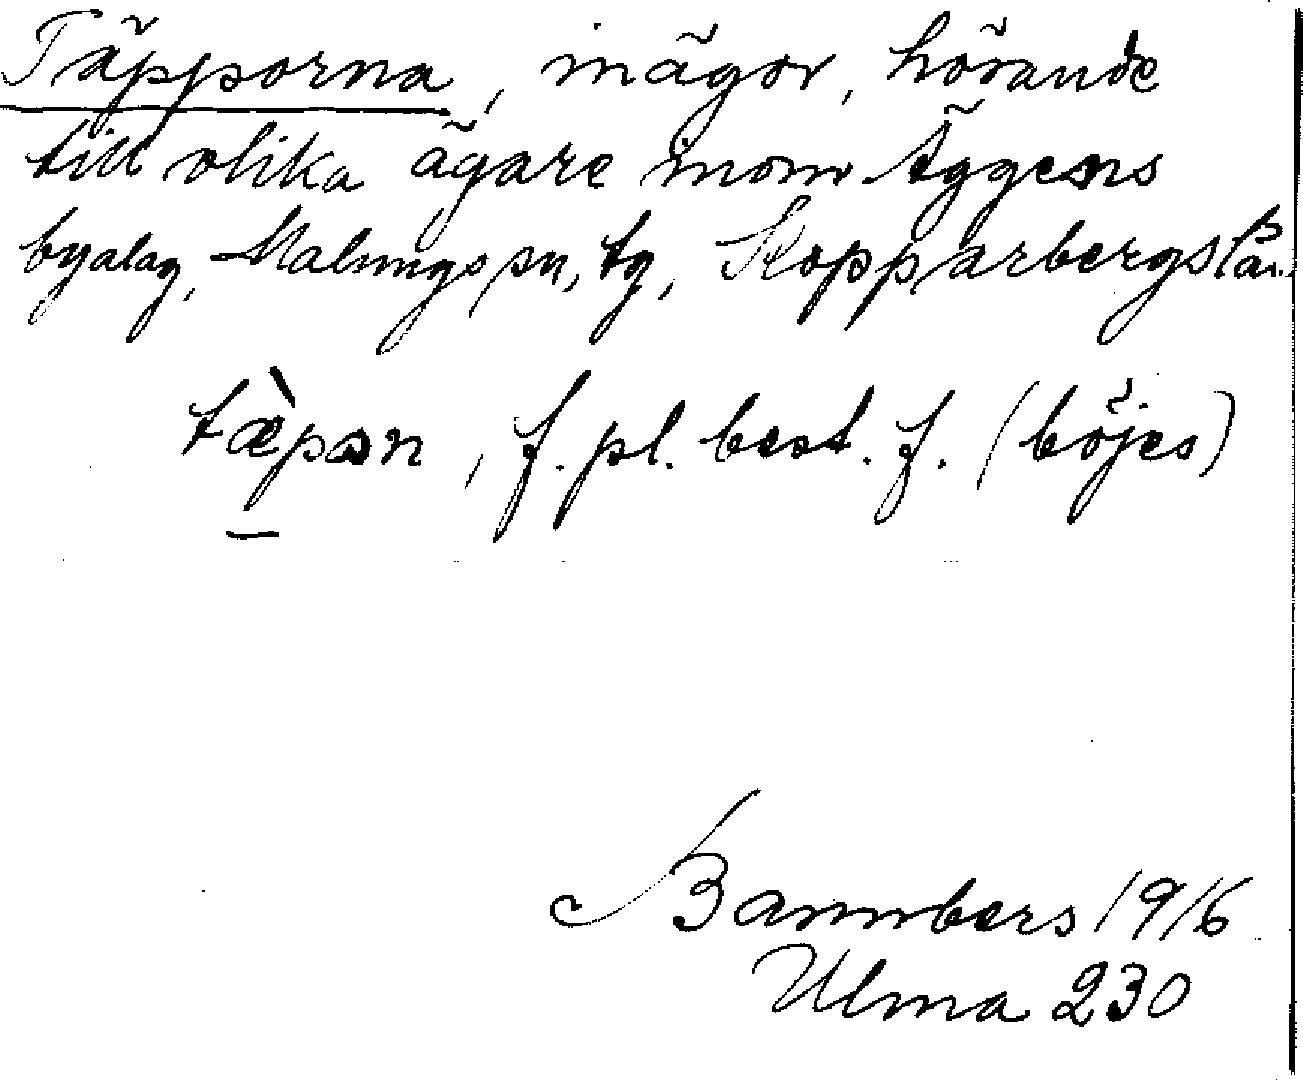 Täpporna, inägor, hörande
till olika ägare inom Äggens
byalag, Malungs sn, tg, Kopparbergs län.
tæ̀pan, f. pl. best. f. (böjes)
Bannbers 1916
Ulma 230